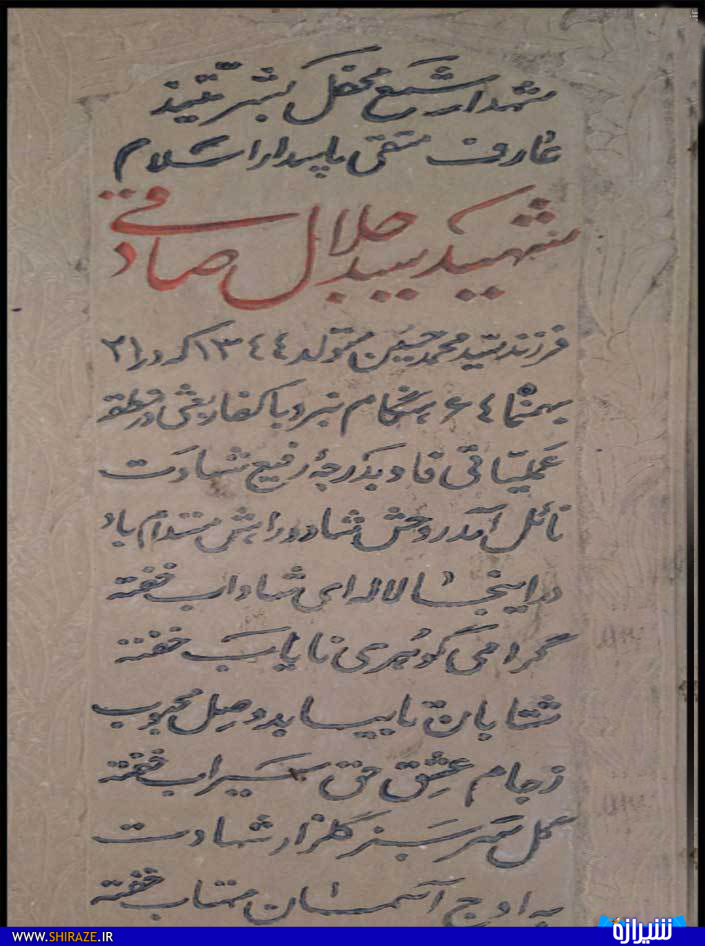 شهدا را شمع محفل بشریتند
عارف متقی پاسدار اسلام
شهید سید جلال صادقی
فرزند سید محمد حسین متولد ۱۳۴۴ که در ۲۱
بهمن ۶۴ هنگام نبرد با کفار بعثی در منطقه
عملیاتی فاو بدرجهٔ رفیع شهادت
نائل آمد روحش شاد و راهش مستدام باد
در اینجا لاله ای شاداب خفته
گرامی گوهری نایاب خفته
شتابان تا بیابد وصل محبوب
ز جام عشق حق سیراب خفته
گل سرسبز گلزار شهادت
به اوج آسمان مهتاب خفته
WWW.SHIRAZE.IR
شیرازه